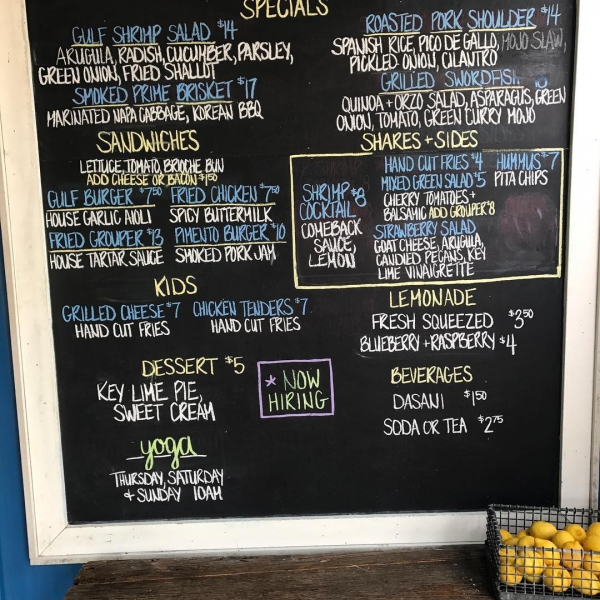 SPECIALS
GULF SHRIMP SALAD $14
ARUGULA, RADISH, CUCUMBER, PARSLEY,
GREEN ONION, FRIED SHALLOT
SMOKED PRIME BRISKET $17
MARINATED NAPA CABBAGE, KOREAN BBQ
ROASTED PORK SHOULDER $14
SPANISH RICE, PICO DE GALLO, MOJO SLAW,
PICKLED ONION, CILANTRO
GRILLED SWORDFISH
QUINOA + ORZO SALAD, ASPARAGUS, GREEN
ONION, TOMATO, GREEN CURRY MOJO
SANDWICHES
LETTUCE, TOMATO, BRIOCHE BUN
ADD CHEESE OR BACON $1.50
GULF BURGER $7.50
HOUSE GARLIC AIOLI
FRIED CHICKEN $7.50
SPICY BUTTERMILK
FRIED GROUPER $13
HOUSE TARTAR SAUCE
PIMENTO BURGER $10
SMOKED PORK JAM
SHARES + SIDES
SHRIMP $8
COCKTAIL
COMEBACK
SAUCE,
LEMON
HAND CUT FRIES $4
MIXED GREEN SALAD $5
CHERRY TOMATOES +
BALSAMIC ADD GROUPER $8
STRAWBERRY SALAD
GOAT CHEESE, ARUGULA,
CANDIED PECANS, KEY
LIME VINAIGRETTE
HUMMUS $7
PITA CHIPS
KIDS
GRILLED CHEESE $7
HAND CUT FRIES
CHICKEN TENDERS $7
HAND CUT FRIES
LEMONADE
FRESH SQUEEZED $3.50
BLUEBERRY + RASPBERRY $4
DESSERT $5
KEY LIME PIE,
SWEET CREAM
* NOW
HIRING
BEVERAGES
DASANI $1.50
SODA OR TEA $2.75
yoga
THURSDAY, SATURDAY
& SUNDAY 10AM